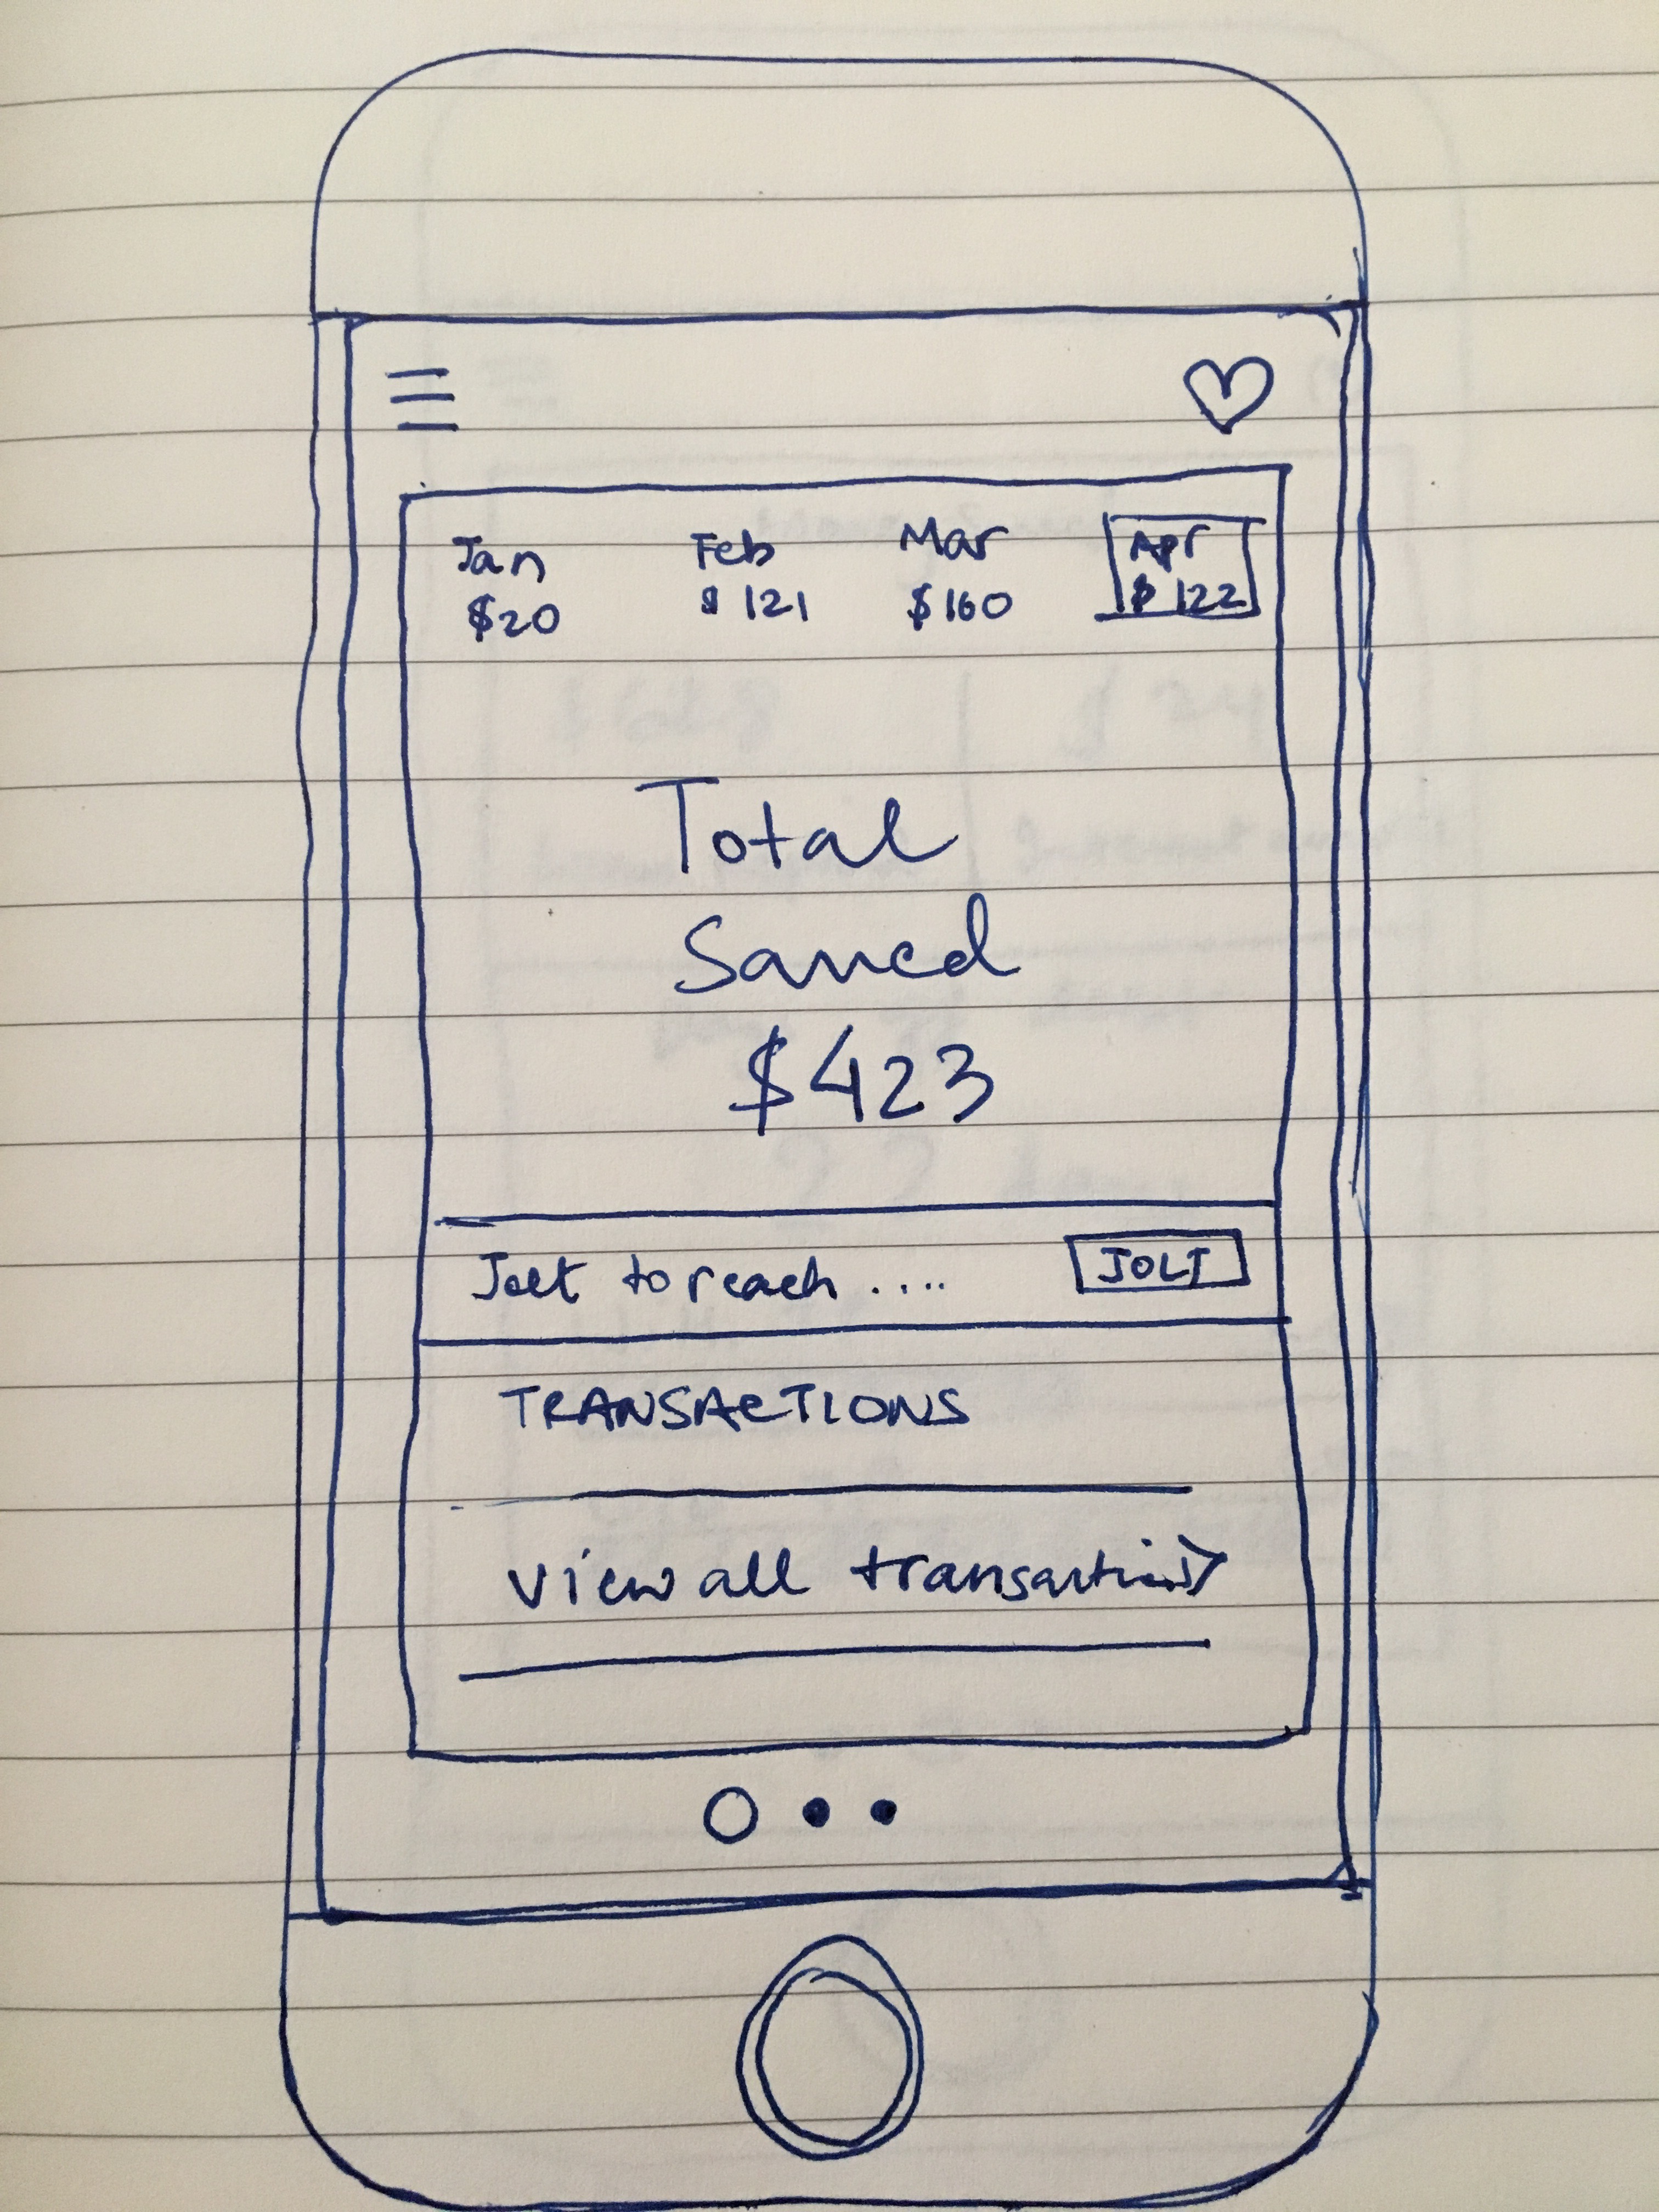 Jan Feb Mar Apr
$20 $121 $160 $122
Total
Saved
$423
Jolt to reach .... JOLT
TRANSACTIONS
View all transactions >